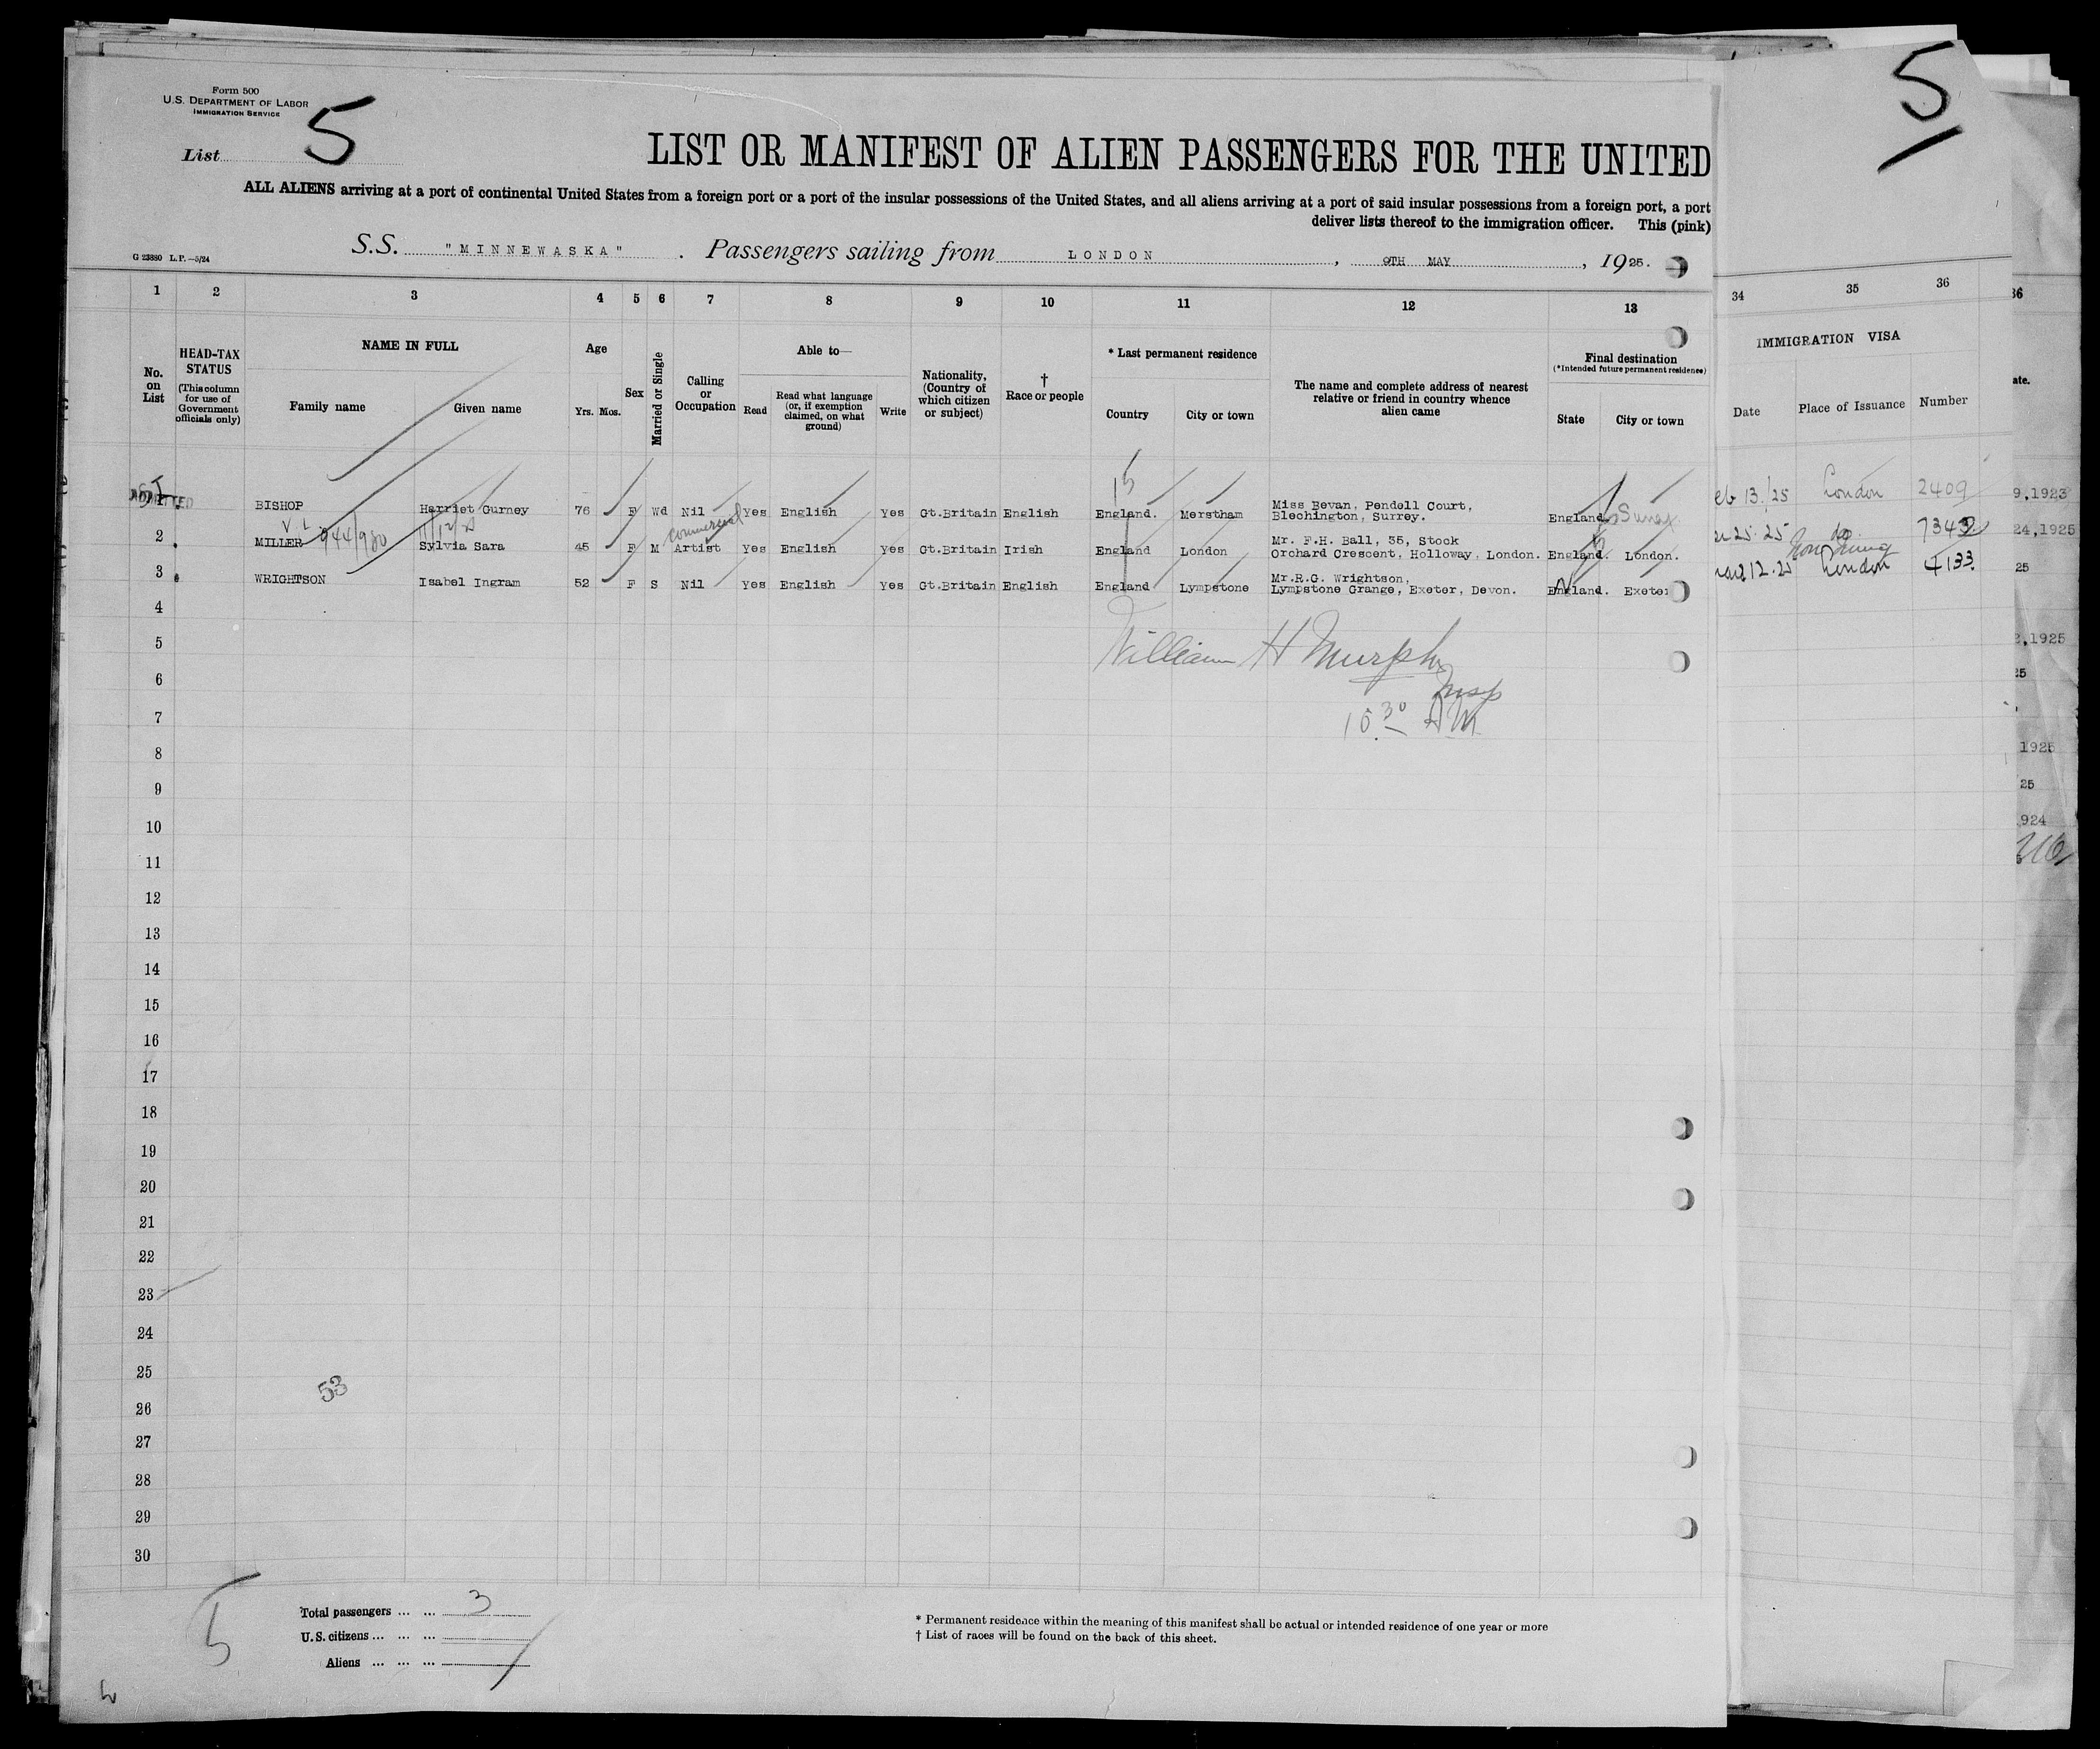 Form 500
U.S. DEPARTMENT OF LABOR
IMMIGRATION SERVICE
List 5
5
LIST OR MANIFEST OF ALIEN PASSENGERS FOR THE UNITED
ALL ALIENS arriving at a port of continental United States from a foreign port or a port of the insular possessions of the United States, and all aliens arriving at a port of said insular possessions from a foreign port, a port
deliver lists thereof to the immigration officer. This (pink)
G 23880 L.P.—5/24
S.S. "MINNEWASKA". Passengers sailing from LONDON, 9TH MAY, 1925.
1 2 3 4 5 6 7 8 9 10 11 12 13 34 35 36
36
No. on List
HEAD-TAX STATUS (This column for use of Government officials only)
NAME IN FULL
Family name Given name
Age
Yrs. Mos.
Sex
Married or Single
Calling or Occupation
Able to—
Read
Read what language (or, if exemption claimed, on what ground)
Write
Nationality. (Country of which citizen or subject)
† Race or people
* Last permanent residence
Country City or town
The name and complete address of nearest relative or friend in country whence alien came
Final destination
(*Intended future permanent residence)
State City or town
IMMIGRATION VISA
Date Place of Issuance Number
ate.
ADMITTED
1 BISHOP Harriet Gurney 76 F Wd Nil Yes English Yes Gt.Britain English England. Merstham Miss Bevan, Pendell Court, Blechington, Surrey. England Surrey
eb 13/25 London 2409
9,1923
944/980
2 MILLER Sylvia Sara 45 F M commercial Artist Yes English Yes Gt.Britain Irish England London Mr. F.H. Ball, 35, Stock Orchard Crescent, Holloway, London. England. London.
25.25 do 7343
24,1925
3 WRIGHTSON Isabel Ingram 52 F S Nil Yes English Yes Gt.Britain English England Lympstone Mr.R.G. Wrightson, Lympstone Grange, Exeter, Devon. England. Exeter
12.25 London 4133
25
4
5
William H Murphy
2,1925
6
Insp
25
7
10.30 AM
8
1925
9
25
10
924
11
12
13
14
15
16
17
18
19
20
21
22
23
24
25
53
26
27
28
29
30
5
Total passengers ... ... 3
U.S. citizens ... ... ...
Aliens ... ... ...
* Permanent residence within the meaning of this manifest shall be actual or intended residence of one year or more
† List of races will be found on the back of this sheet.